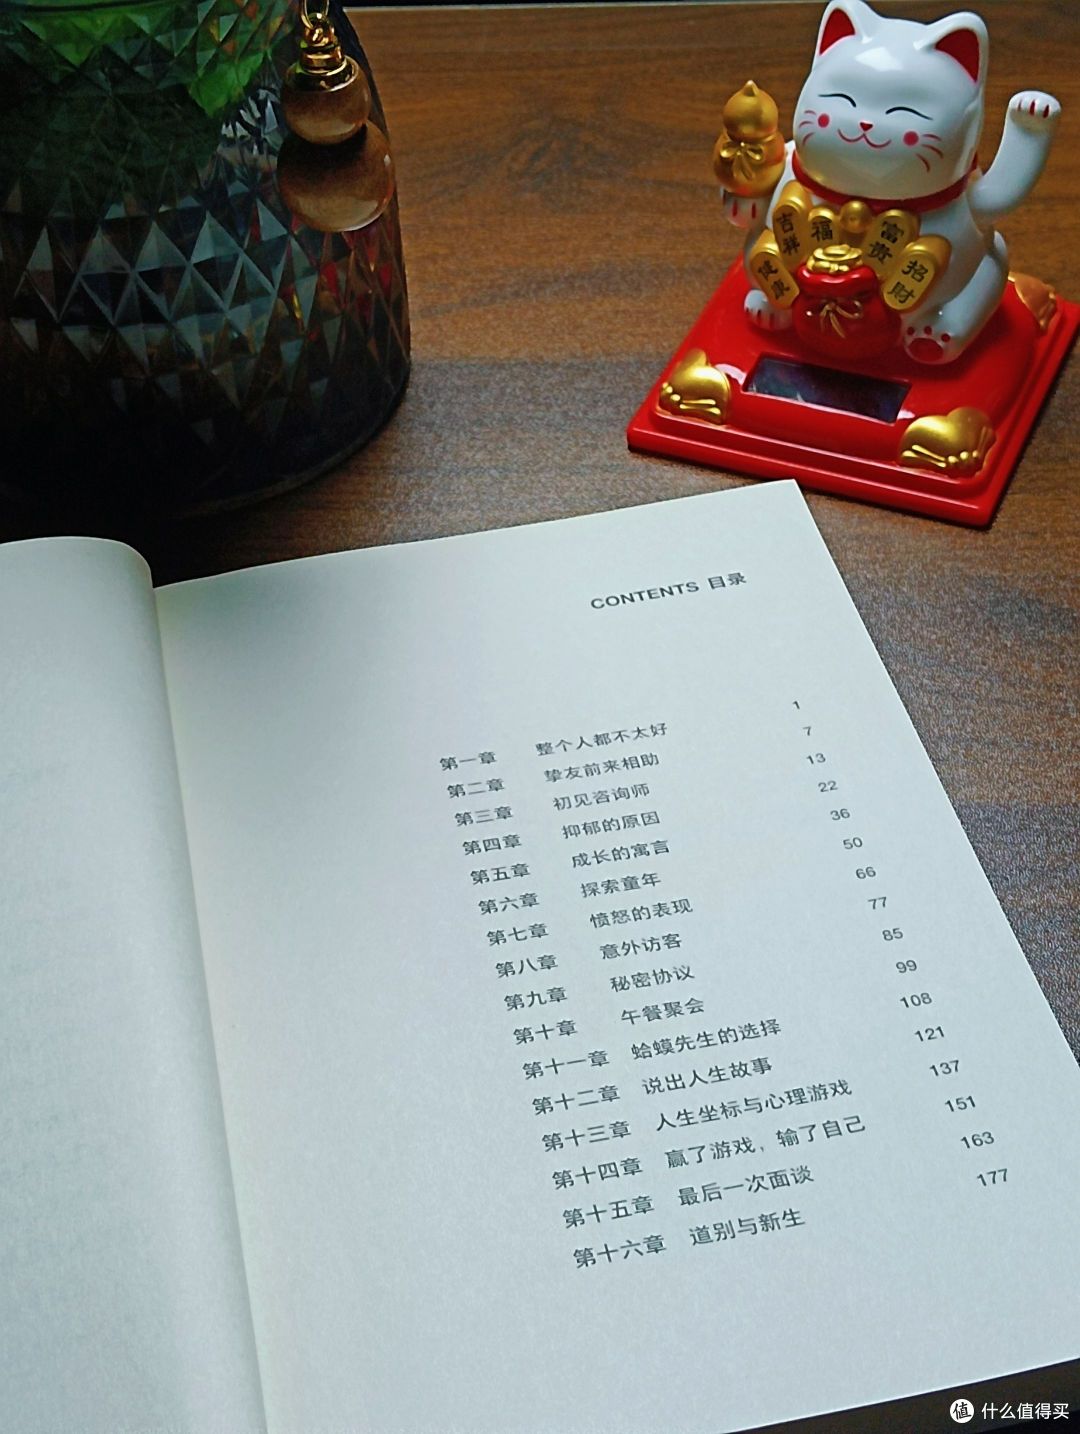 吉祥
福
富贵
招财
健康
CONTENTS 目录
第一章 整个人都不太好 1
第二章 挚友前来相助 7
第三章 初见咨询师 13
第四章 抑郁的原因 22
第五章 成长的寓言 36
第六章 探索童年 50
第七章 愤怒的表现 66
第八章 意外访客 77
第九章 秘密协议 85
第十章 午餐聚会 99
第十一章 蛤蟆先生的选择 108
第十二章 说出人生故事 121
第十三章 人生坐标与心理游戏 137
第十四章 赢了游戏，输了自己 151
第十五章 最后一次面谈 163
第十六章 道别与新生 177
值 什么值得买